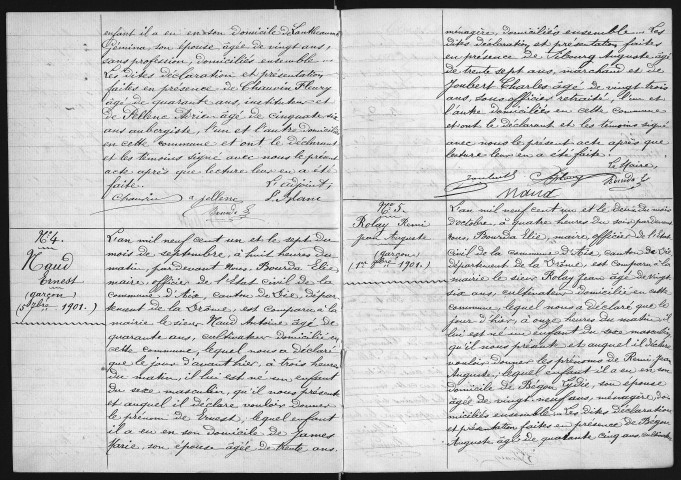 enfant il a eu en son domicile de
Gémina, son épouse âgée de vingt ans,
sans profession, domiciliés ensemble.
Les dites déclaration et présentation
faites en présence de Chauvin Fleury
âgé de quarante ans, instituteur et
de Pellenc Adrien âgé de cinquante six
ans aubergiste, l'un et l'autre domiciliés
en cette commune et ont le déclarant
et les témoins signé avec nous le présent
acte après que lecture leur en a été
faite. L'adjoint,
Chauvin a pellenc
N° 4.
Naud
Ernest
(garçon)
(5 7bre 1901.)
L'an mil neuf cent un et le sept du
mois de septembre, à huit heures du
matin, par devant nous, Bourda Elie,
maire, officier de l'état civil de la
commune d'Aix, canton de Die, dépar-
tement de la Drôme, est comparu à la
mairie le sieur Naud Antoine âgé de
quarante ans, cultivateur domicilié en
cette commune, lequel nous a déclaré
que le jour d'avant hier, à trois heures
du matin, il lui est né un enfant
du sexe masculin, qu'il nous présente
et auquel il déclare vouloir donner
le prénom de Ernest, lequel enfant
il a eu en son domicile de James
Marie, son épouse âgée de trente ans,
ménagère, domiciliés ensemble. Les
dites déclaration et présentation faites
en présence de Auguste âgé
de trente sept ans, marchand et de
Joubert Charles âgé de vingt trois
ans, sous officier retraité, l'un et
l'autre domiciliés en cette commune
et ont le déclarant et les témoins signé
avec nous le présent acte après que
lecture leur en a été faite.
Le Maire,
Joubert
Naud
N° 5.
Rolay Remi
Jean Auguste
(garçon)
(1er 8bre 1901.)
L'an mil neuf cent un et le deux du mois
d'octobre, à quatre heures du soir, par devant
nous, Bourda Elie, maire officier de l'état
civil de la commune d'Aix, canton de Die
département de la Drôme, est comparu à la
mairie le sieur Rolay Jean âgé de vingt
six ans, cultivateur domicilié en cette
commune, lequel nous a déclaré que le
jour d'hier, à onze heures du matin il
lui est né un enfant du sexe masculin
qu'il nous présente et auquel il déclare
vouloir donner les prénoms de Remi Jean
Auguste; lequel enfant il a eu en son
domicile de Bégou Lydie, son épouse
âgée de vingt neuf ans, ménagère, do-
miciliés ensemble. Les dites déclaration
et présentation faites en présence de Bégou
Auguste âgé de quarante cinq ans, cultivateur